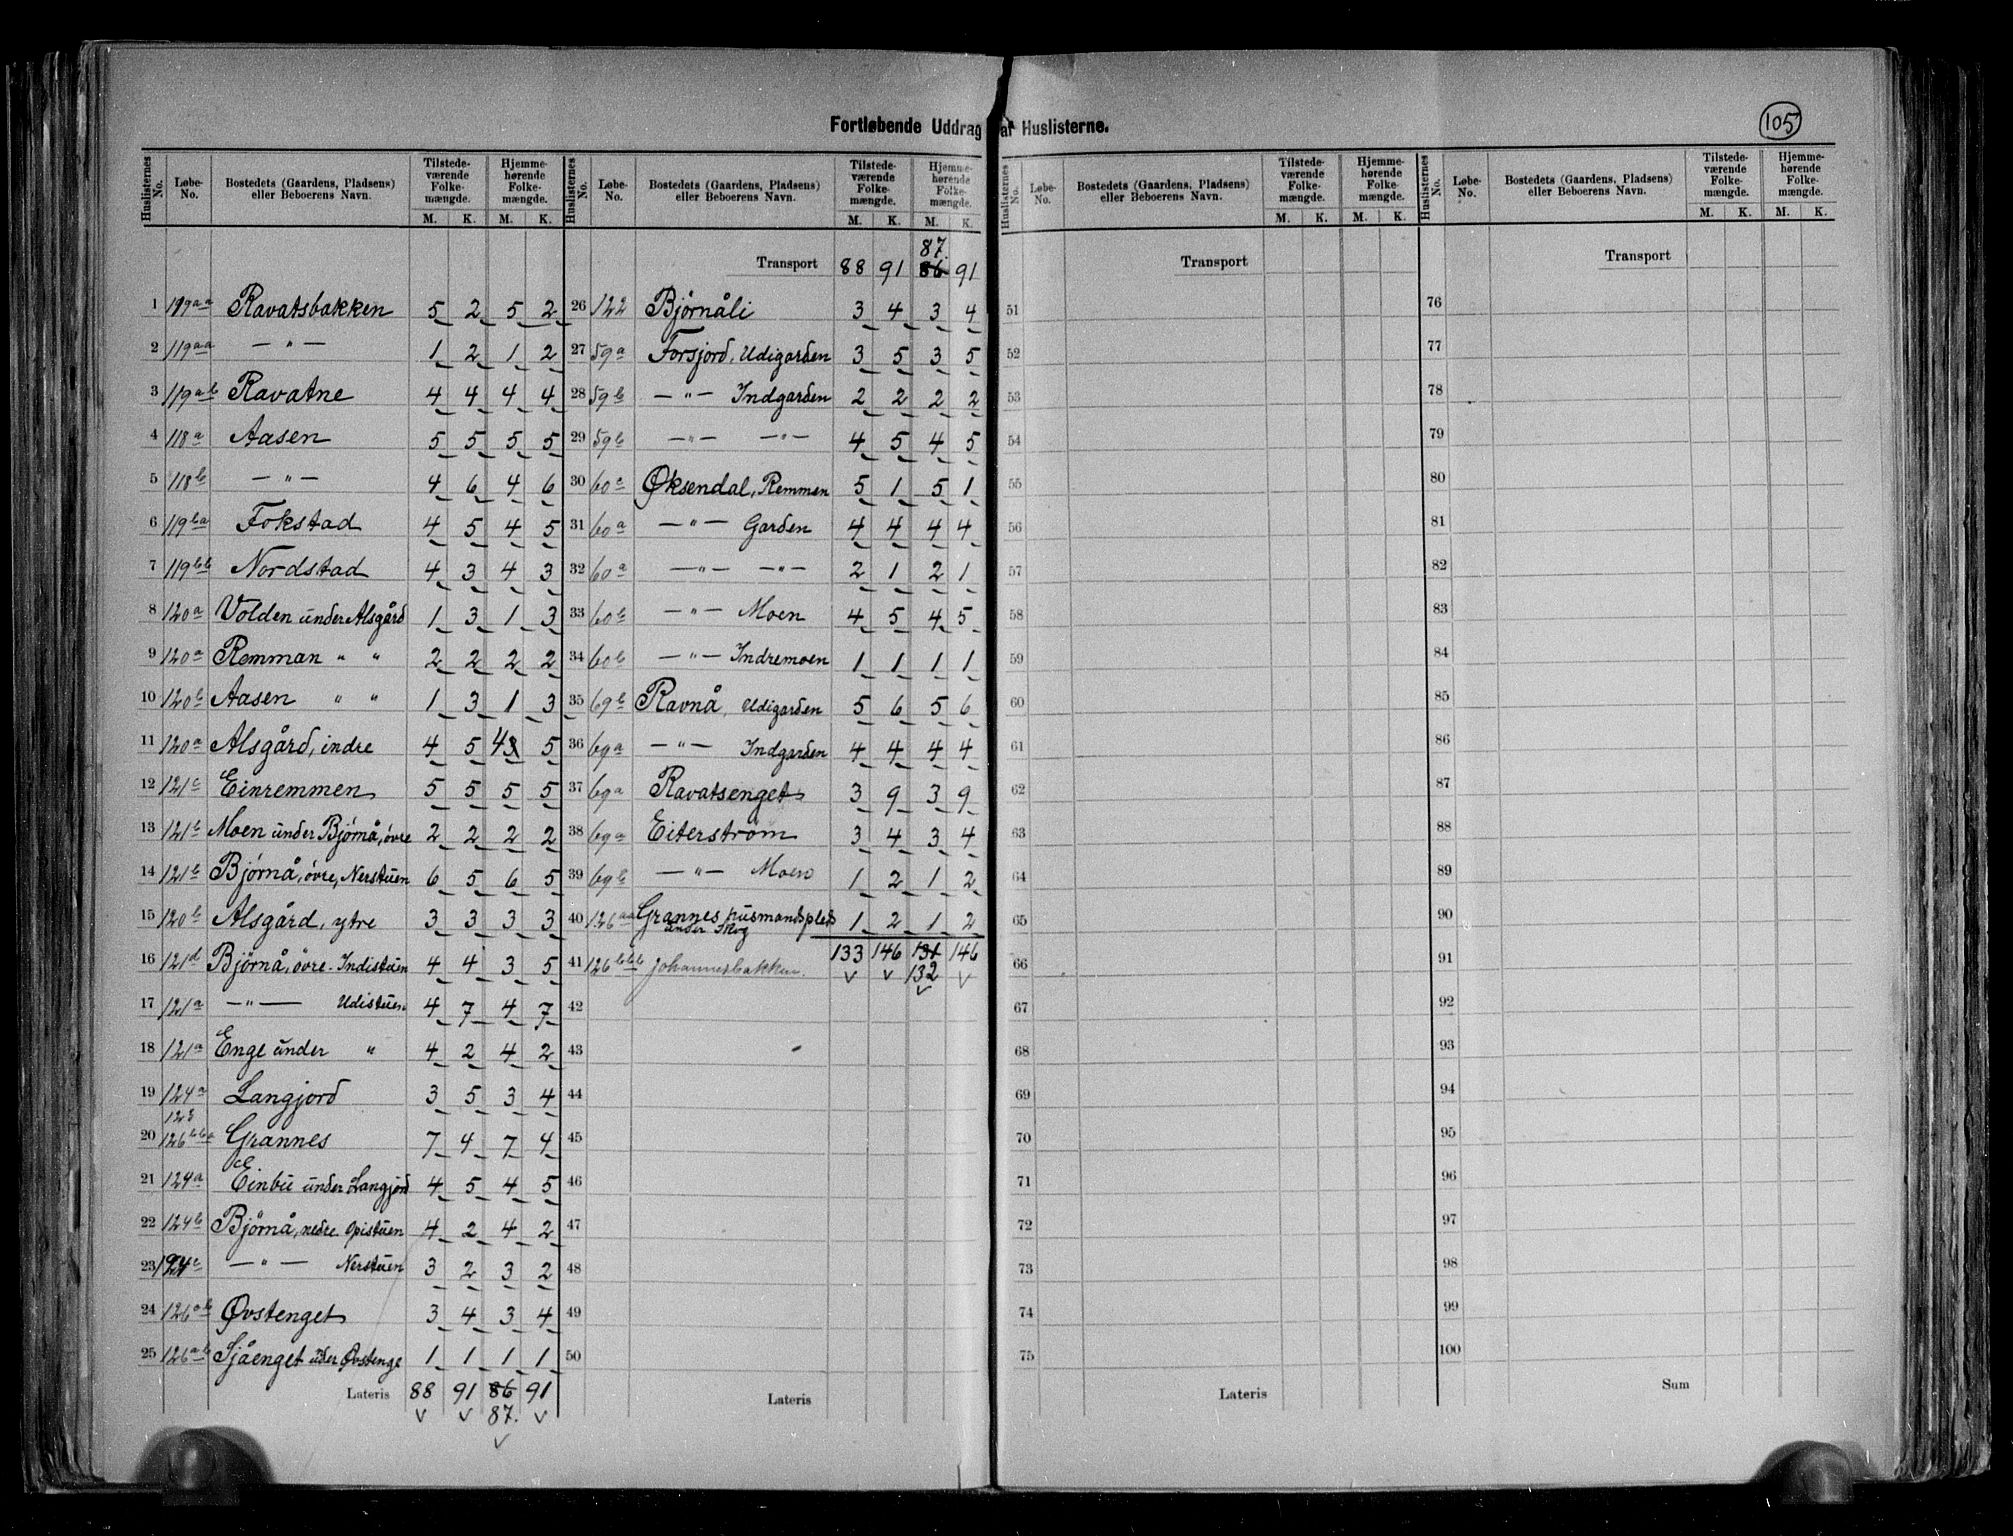 105
Fortløbende Uddrag af Huslisterne.
Huslisternes No. | Løbe-No. | Bostedets (Gaardens, Pladsens) eller Beboerens Navn. | Tilstedeværende Folkemængde. M. K. | Hjemmehørende Folkemængde. M. K.
1 119aa Ravatsbakken 5 2 5 2
2 119aa — " — 1 2 1 2
3 119ab Ravatne 4 4 4 4
4 118a Aasen 5 5 5 5
5 118b — " — 4 6 4 6
6 119ba Fokstad 4 5 4 5
7 119bb Nordstad 4 3 4 3
8 120a Volden under Alsgård 1 3 1 3
9 120a Remman " " 2 2 2 2
10 120b Aasen " " 1 3 1 3
11 120a Alsgård, indre 4 5 4 5
12 121c Einremmen 5 5 5 5
13 121b Moen under Bjørnå, øvre 2 2 2 2
14 121b Bjørnå, øvre, Nerstuen 6 5 6 5
15 120b Alsgård, ytre 3 3 3 3
16 121d Bjørnå, øvre - Indistuen 4 4 3 5
17 121a — " — Udistuen 4 7 4 7
18 121a Enge under " 4 2 4 2
19 124a Langjord 3 5 3 4
123
20 126bba Grannes 7 4 7 4
21 124a Einbu under Langjord 4 5 4 5
22 124b Bjørnå, nedre Opistuen 4 2 4 2
23 124c — " — Nerstuen 3 2 3 2
24 126ab Øvstenget 3 4 3 4
25 126ab Sjåenget under Øvstenge 1 1 1 1
Lateris 88 91 86 91
87.
Huslisternes No. | Løbe-No. | Bostedets (Gaardens, Pladsens) eller Beboerens Navn. | Tilstedeværende Folkemængde. M. K. | Hjemmehørende Folkemængde. M. K.
87.
Transport 88 91 86 91
26 122 Bjørnåli 3 4 3 4
27 59a Forsjord, Udigarden 3 5 3 5
28 59b — " — Indgarden 2 2 2 2
29 59b — " — — " — 4 5 4 5
30 60a Øksendal, Remmen 5 1 5 1
31 60a — " — Garden 4 4 4 4
32 60a — " — — " — 2 1 2 1
33 60b — " — Moen 4 5 4 5
34 60b — " — Indremoen 1 1 1 1
35 69b Ravnå, Udigarden 5 6 5 6
36 69a — " — Indgarden 4 4 4 4
37 69a Ravatsenget 3 9 3 9
38 69a Eiterstrøm 3 4 3 4
39 69b — " — Moen 1 2 1 2
40 126aa Grannes husmandsplads 1 2 1 2
under Skog
133 146 131 146
41 126bbb Johannesbakken. 132
42
43
44
45
46
47
48
49
50
Lateris
Huslisternes No. | Løbe-No. | Bostedets (Gaardens, Pladsens) eller Beboerens Navn. | Tilstedeværende Folkemængde. M. K. | Hjemmehørende Folkemængde. M. K.
Transport
51
52
53
54
55
56
57
58
59
60
61
62
63
64
65
66
67
68
69
70
71
72
73
74
75
Lateris
Huslisternes No. | Løbe-No. | Bostedets (Gaardens, Pladsens) eller Beboerens Navn. | Tilstedeværende Folkemængde. M. K. | Hjemmehørende Folkemængde. M. K.
Transport
76
77
78
79
80
81
82
83
84
85
86
87
88
89
90
91
92
93
94
95
96
97
98
99
100
Sum